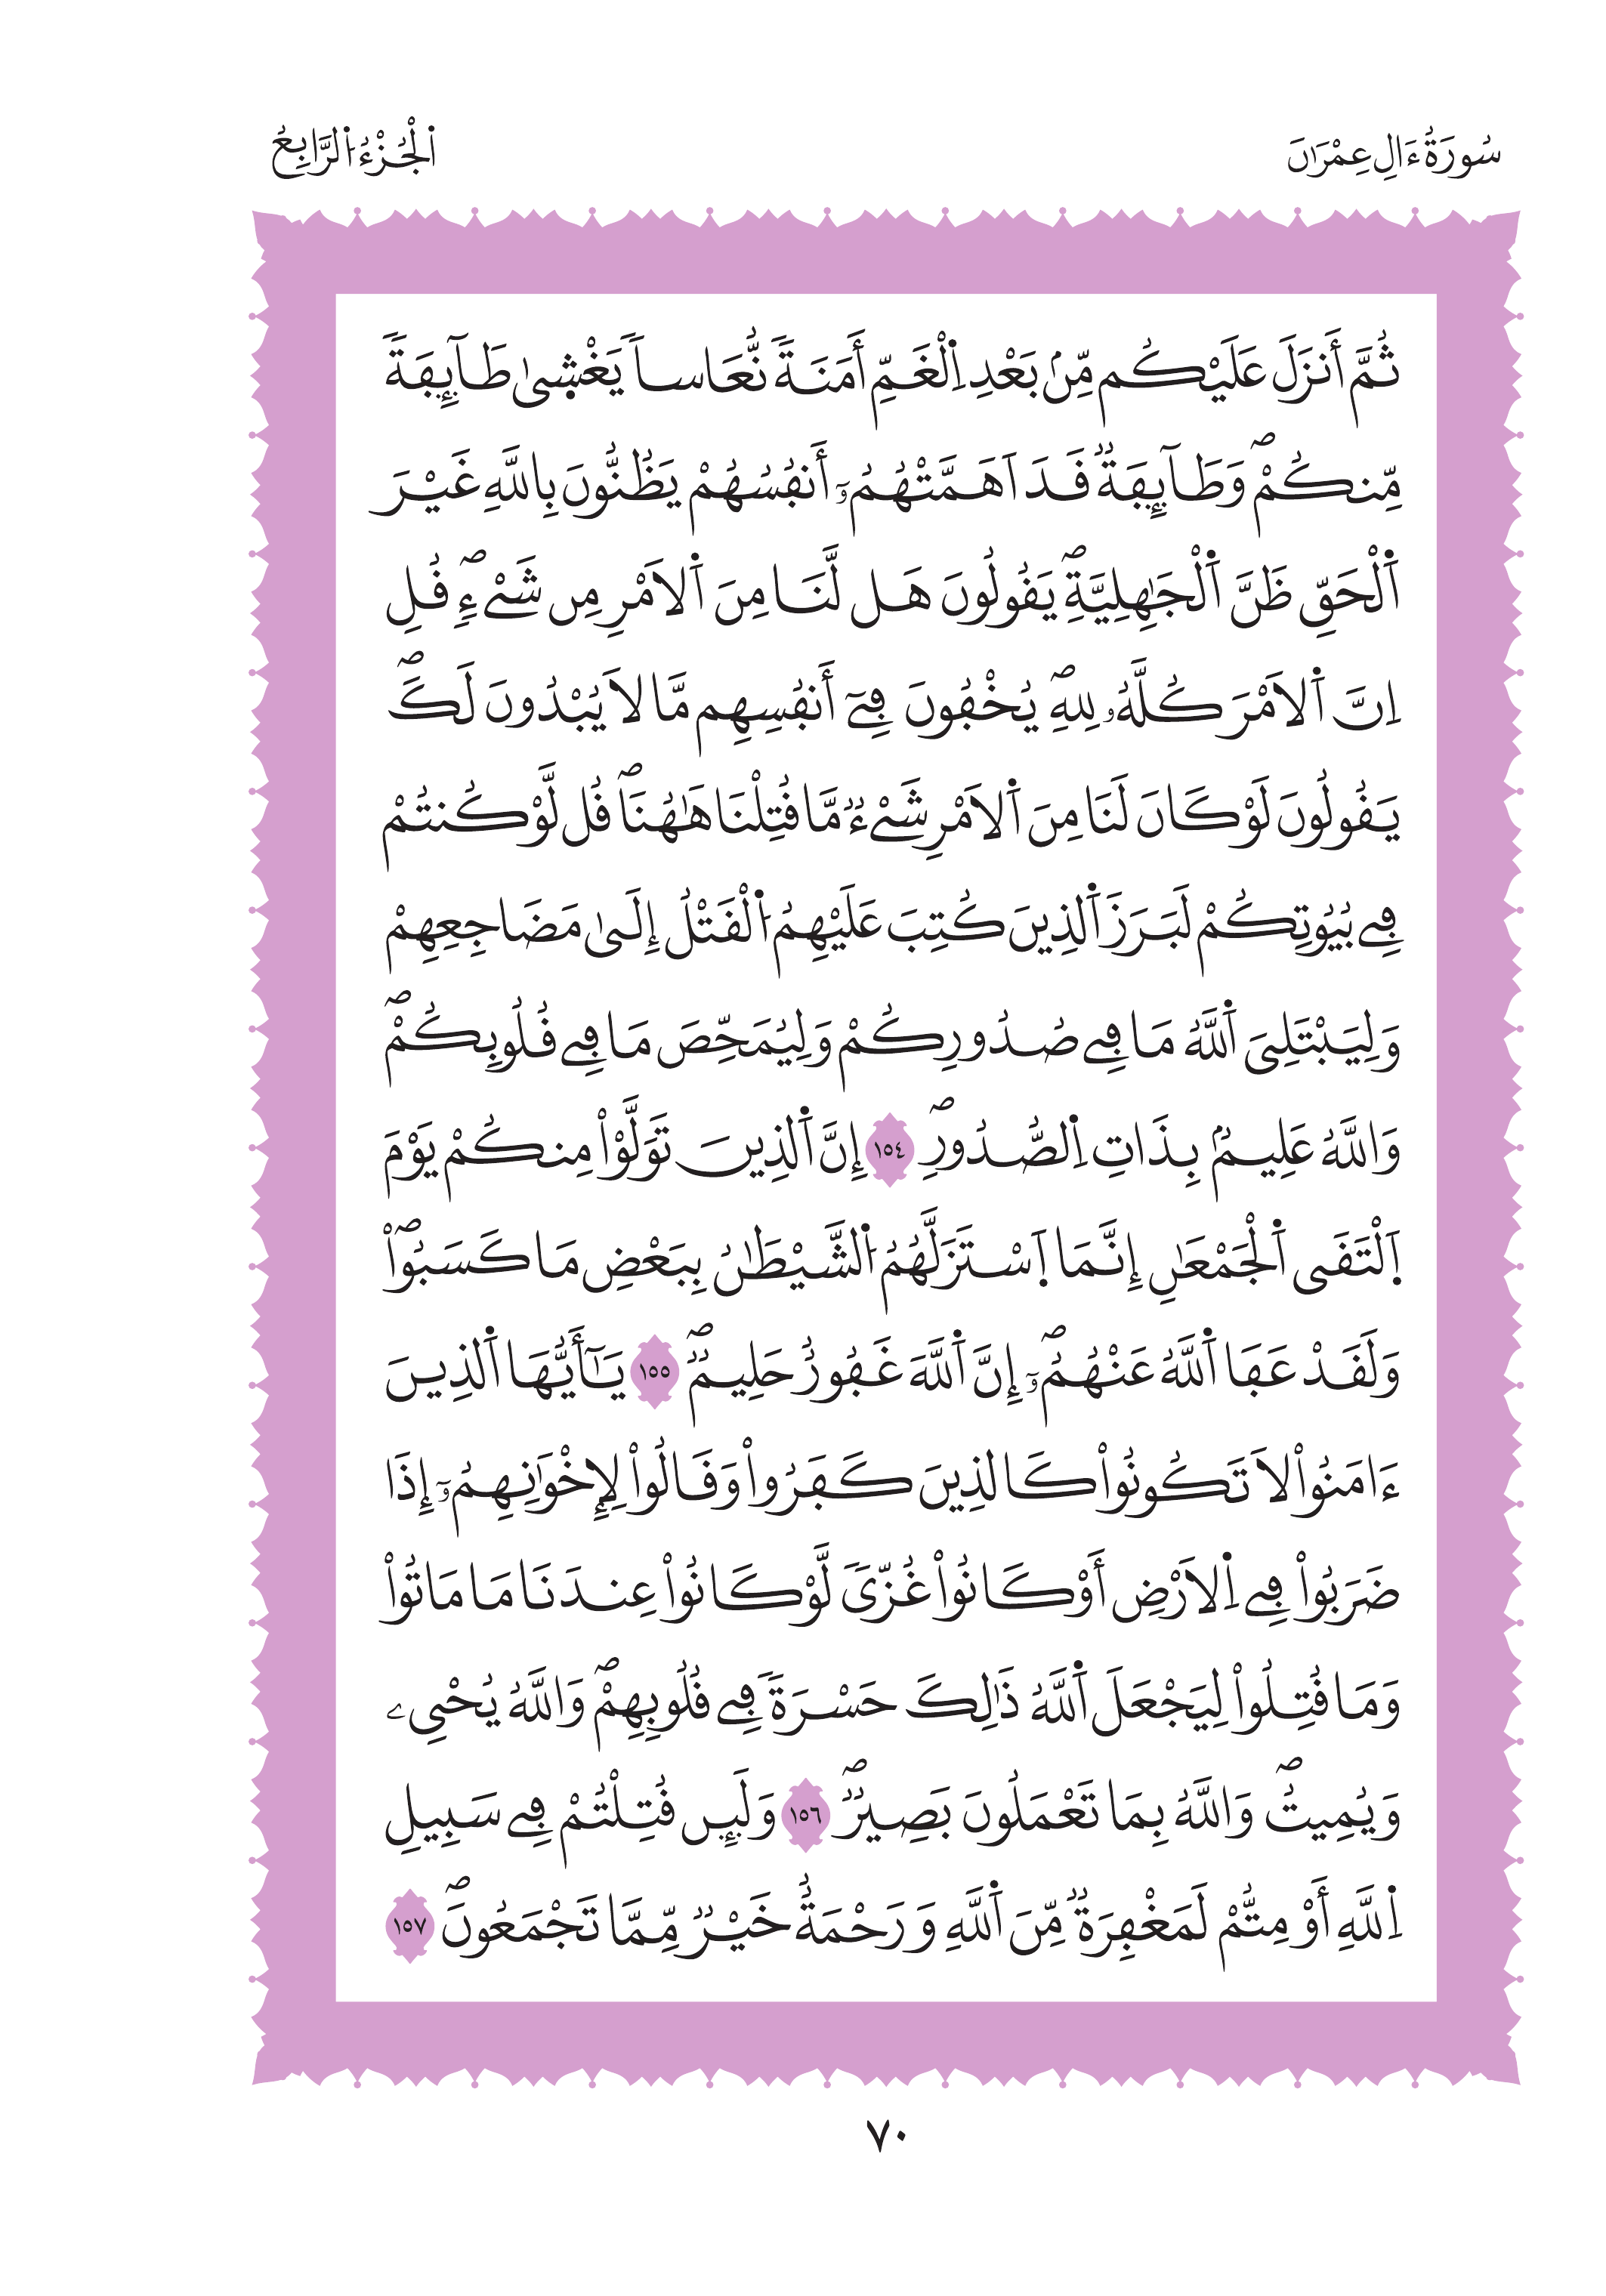 سُورَةُ ءَالِ عِمْرَٰنَ
اَ۬لْجُزْءُ اُ۬لرَّابِعُ
ثُمَّ أَنزَلَ عَلَيْكُم مِّنۢ بَعْدِ اِ۬لْغَمِّ أَمَنَةٗ نُّعَاساٗ يَغْش۪ىٰ طَآئِفَةٗ
مِّنكُمْۖ وَطَآئِفَةٞ قَدَ اَهَمَّتْهُمُۥٓ أَنفُسُهُمْ يَظُنُّونَ بِاللَّهِ غَيْرَ
اَ۬لْحَقِّ ظَنَّ اَ۬لْجَٰهِلِيَّةِۖ يَقُولُونَ هَل لَّنَا مِنَ اَ۬لَامْرِ مِن شَےْءٖۖ قُلِ
اِنَّ اَ۬لَامْرَ كُلَّهُۥ لِلهِۖ يُخْفُونَ فِےٓ أَنفُسِهِم مَّا لَا يُبْدُونَ لَكَۖ
يَقُولُونَ لَوْ كَانَ لَنَا مِنَ اَ۬لَامْرِ شَےْءٞ مَّا قُتِلْنَا هَٰهُنَاۖ قُل لَّوْ كُنتُمْ
فِے بُيُوتِكُمْ لَبَرَزَ اَ۬لذِينَ كُتِبَ عَلَيْهِمُ اُ۬لْقَتْلُ إِلَىٰ مَضَاجِعِهِمْ
وَلِيَبْتَلِىَ اَ۬للَّهُ مَا فِے صُدُورِكُمْ وَلِيُمَحِّصَ مَا فِے قُلُوبِكُمْۖ
وَاللَّهُ عَلِيمُۢ بِذَاتِ اِ۬لصُّدُورِۖ ١٥٤ إِنَّ اَ۬لذِينَ تَوَلَّوْاْ مِنكُمْ يَوْمَ
اَ۪لْتَقَى اَ۬لْجَمْعَٰنِ إِنَّمَا اَ۪سْتَزَلَّهُمُ اُ۬لشَّيْطَٰنُ بِبَعْضِ مَا كَسَبُواْۖ
وَلَقَدْ عَفَا اَ۬للَّهُ عَنْهُمُۥٓۖ إِنَّ اَ۬للَّهَ غَفُورٌ حَلِيمٞۖ ١٥٥ يَٰٓأَيُّهَا اَ۬لذِينَ
ءَامَنُواْ لَا تَكُونُواْ كَالذِينَ كَفَرُواْ وَقَالُواْ لِإِخْوَٰنِهِمُۥٓ إِذَا
ضَرَبُواْ فِے اِ۬لَارْضِ أَوْ كَانُواْ غُزّىٗ لَّوْ كَانُواْ عِندَنَا مَا مَاتُواْ
وَمَا قُتِلُواْ لِيَجْعَلَ اَ۬للَّهُ ذَٰلِكَ حَسْرَةٗ فِے قُلُوبِهِمْۖ وَاللَّهُ يُحْىِۦ
وَيُمِيتُۖ وَاللَّهُ بِمَا تَعْمَلُونَ بَصِيرٞۖ ١٥٦ وَلَئِن قُتِلْتُمْ فِے سَبِيلِ
اِ۬للَّهِ أَوْ مِتُّمْ لَمَغْفِرَةٞ مِّنَ اَ۬للَّهِ وَرَحْمَةٌ خَيْرٞ مِّمَّا تَجْمَعُونَۖ ١٥٧
٧٠